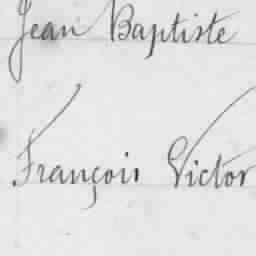 Jean Baptiste
François Victor